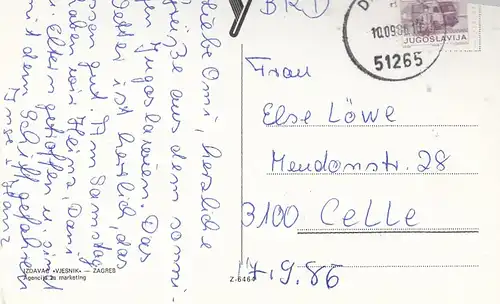 Liebe Omi, herzliche
Grüße aus dem sonni-
gen Jugoslawien. Das
Wetter ist herrlich, das
Essen gut. Am Samstag
haben wir Heinz, Dani
u. Eltern getroffen u. sind
mit dem Schiff gefahren
Franz
BRD
10.09.86.10
51265
JUGOSLAVIJA
Frau
Else Löwe
Mendonstr. 28
3100 Celle
7.9.86
IZDAVAČ »VJESNIK« — ZAGREB
Agencija za marketing
Z-6464